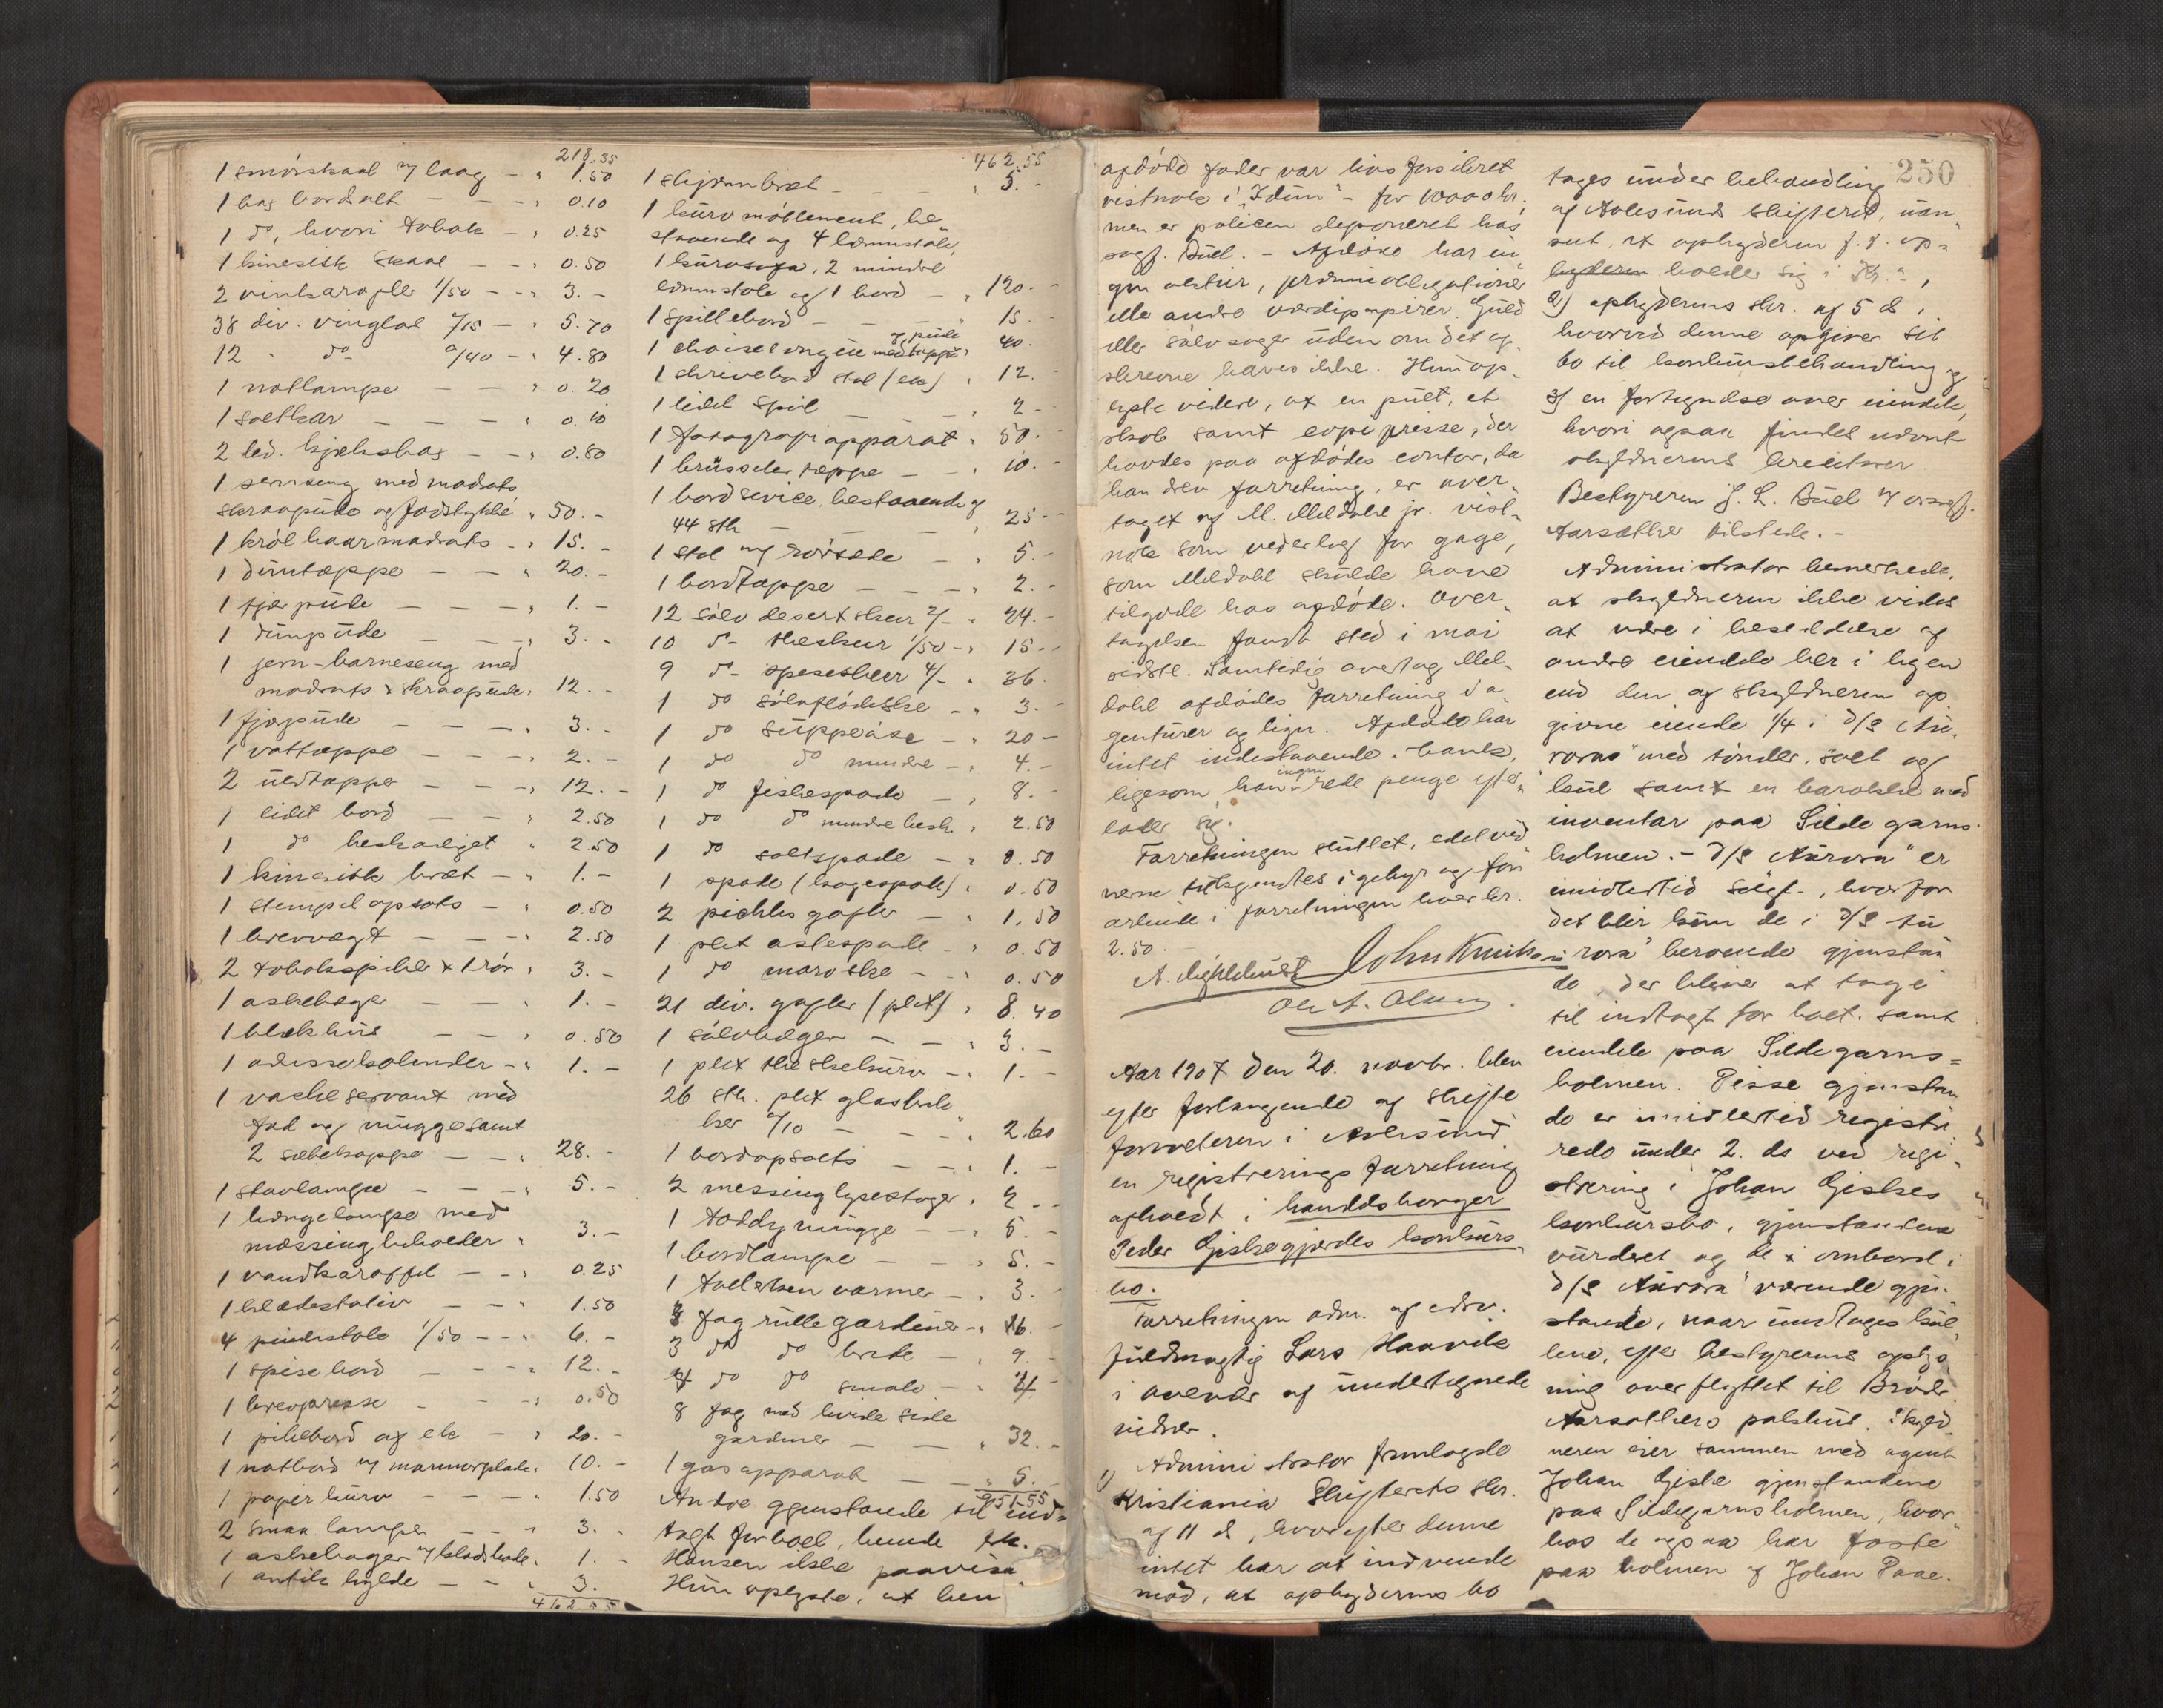 218.35
1 smørskaal m/ laag - " 1.50
1 bag bordsalt - - " 0.10
1 do, hvori tobak - " 0.25
1 kinesisk skaal - - " 0.50
2 vinkarafler 1/50 - - " 3.-
38 div. vinglas a/15 - " 5.70
12 " do a/40 - " 4.80
1 natlampe - - " 0.20
1 saltkar - - - " 0.10
2 led. kjæksbag - - " 0.80
1 jernseng med madrats,
skraapude og fodstykke " 50.-
1 krølhaarmadrats - " 15.-
1 duntæppe - - " 20.-
1 fjærpude - - - " 1.-
1 dunpude - - - " 3.-
1 jern-barneseng med
madrats & skraapude " 12.-
1 fjærpude - - - " 3.-
1 vattæppe - - - " 2.-
2 uldtæpper - - - " 12.-
1 lidet bord - - " 2.50
1 do beskadiget " 2.50
1 kinesisk bræt - " 1.-
1 stempel opsats - " 0.50
1 brevvægt - - - " 2.50
2 tobakspiber & 1 rør " 3.-
1 askebæger - - " 1.-
1 blækhus - - " 0.50
1 adressekalender - " 1.-
1 vaskeservant med
fad og mugge samt
2 sæbekopper - - " 28.-
1 stavlampe - - - " 5.-
1 hængelampe med
messingbeholder " 3.-
1 vandkaraffel - - " 0.25
1 klædestativ - - " 1.50
4 pindestole 1/50 - - " 6.-
1 spisebord - - " 12.-
1 brevpresse - - " 0.50
1 pillebord af ek - " 20.-
1 natbord m/ marmorplade " 10.-
1 papirkurv - - - " 1.50
2 smaa lamper - - " 3.-
1 askebæger m/ " 1.-
1 antik hylde - - " 3.
462.55
462.55
1 skjærmbræt - - - " 5.-
1 kurvmøblement, be-
staaende af 4 lænestole,
1 kurvsofa, 2 mindre
lænestole og 1 bord - " 120.-
1 spillebord - - - " 15.-
1 chaiselongue med tæppe og pude " 40.-
1 skrivebord stol (ek) " 12.-
1 lidet speil - - " 2.-
1 fotografiapparat " 50.-
1 brüsseler tæppe - " 10.-
1 bordservice, bestaaende af
44 stk - - " 25.-
1 stol m/ rørsæde - " 5.-
1 bordtæppe - - - " 2.-
12 sølv desertskeer 2/- " 24.-
10 do theskeer 1/50 - " 15.-
9 do spiseskeer 4/- " 36.
1 do sølvflødeske - " 3.-
1 do suppeøse - " 20-
1 do do mindre - " 4.-
1 do fiskespade - " 8.-
1 do do mindre besk. " 2.50
1 do saltspade - " 0.50
1 spade (kagespade) " 0.50
2 pickles gafler - " 1.50
1 plet ostespade - " 0.50
1 do marvske - " 0.50
21 div. gafler (plet) " 8.40
1 sølvbæger - - " 3.-
1 plet theskekurv - " 1.-
26 stk. plet glasbrik-
ker a/10 - - " 2.60
1 bordopsats - - " 1.-
2 messing lysestager " 2.-
1 toddymugge - - " 5.-
1 bordlampe - - " 5.-
1 tallerken varmer - " 3.-
8 fag rullegardiner - " 16.-
3 do do brede - " 9.-
4 do do smale - " 4.-
8 fag med hvide side
gardiner - - " 32.-
1 gasapparat - - " 5.-
951.55
Andre gjenstande til ind-
tægt for boet, kunde fru
Hansen ikke paavise.
Hun oplyste, at hen
afdøde fader var livsforsikret
vistnok i "Idun" - for 10000 kr.
men er policen deponeret hos
sagf. Buch. - Afdøde har in
gen aktier, præmieobligationer
elle andre værdipapirer. Guld
eller sølvsager uden om det op-
skrevne haves ikke. Hun op-
lyste videre, at en pult, et
skab samt kopipresse, der
havdes paa afdødes contor, da
han drev forretning, er over-
taget af M. Meldahl jr. vist-
nok som vederlag for gage,
som Meldahl skulde have
tilgode hos afdøde. Over-
tagelsen fandt sted i mai
sidstl. Samtidig overtog Mel-
dahl afdødes forretning i a
genturer og lign. Afdøde har
intet indestaaende i bank,
ligesom han ingen rede penge efter-
lader sig.
Forretningen sluttet, edsv. vid
nerne tilkjendtes i gebyr og for
arbeide i forretningen hver kr.
2.50.-
John Knudsen
Ole A. Olsen.
Aar 1907 den 20. novbr. blev
efter forlangende af skifte
forvalteren i Aalesund
en registreringsforretning
afholdt i handelsborger
Peder Giskegjerdes konkurs
bo.
Forretningen adm. af edsv.
fuldmægtig Lars Haavik
i overvær af undertegnede
vidner.
Administrator fremlagde
1) Kristiania Skifterets skr.
af 11 ds, hvorefter denne
intet har at indvende
mod, at opbyderens bo
250
tages under behandling
af Aalesunds skifteret, uan
seet, at opbyderen f. t. op-
byderen holder sig i Kr.a,
2) opbyderens skr. af 5 ds,
hvorved denne opgiver sit
bo til konkursbehandling og
3) en fortegnelse over eiendele,
hvori ogsaa findes nævnt
skyldnerens kreditorer.
Bestyreren J. L. Buch m/
Aarsæther tilstede.-
Administrator bemerkede,
at skyldneren ikke vides
at være i besiddelse af
andre eiendele her i byen
end den af skyldneren op
givne eiende 1/4 i D/S "Au-
rora" med tønder, salt og
kul samt en barakke med
inventar paa Sildegarns-
holmen. - D/S "Aurora" er
imidlertid solgt, hvorfor
det blir kun de i D/S "Au
rora" beroende gjenstan
de, der bliver at tage
til indtægt for boet, samt
eiendele paa Sildegarns-
holmen. Disse gjenstan
de er imidlertid registre
rede under 2. ds ved regi-
strering i Johan Giskes
konkursbo, gjenstandene
vurderet og de ombord i
D/S "Aurora" værende gjen-
stande, naar undtages kul-
lene, efter bestyrerens oplys
ning overflyttet til Brødr.
Aarsæthers pakhus. Skyld-
neren eier sammen med agent
Johan Giske gjenstandene
paa Sildegarnsholmen, hvor
hos de ogsaa har fæste
paa holmen af Johan Paae.